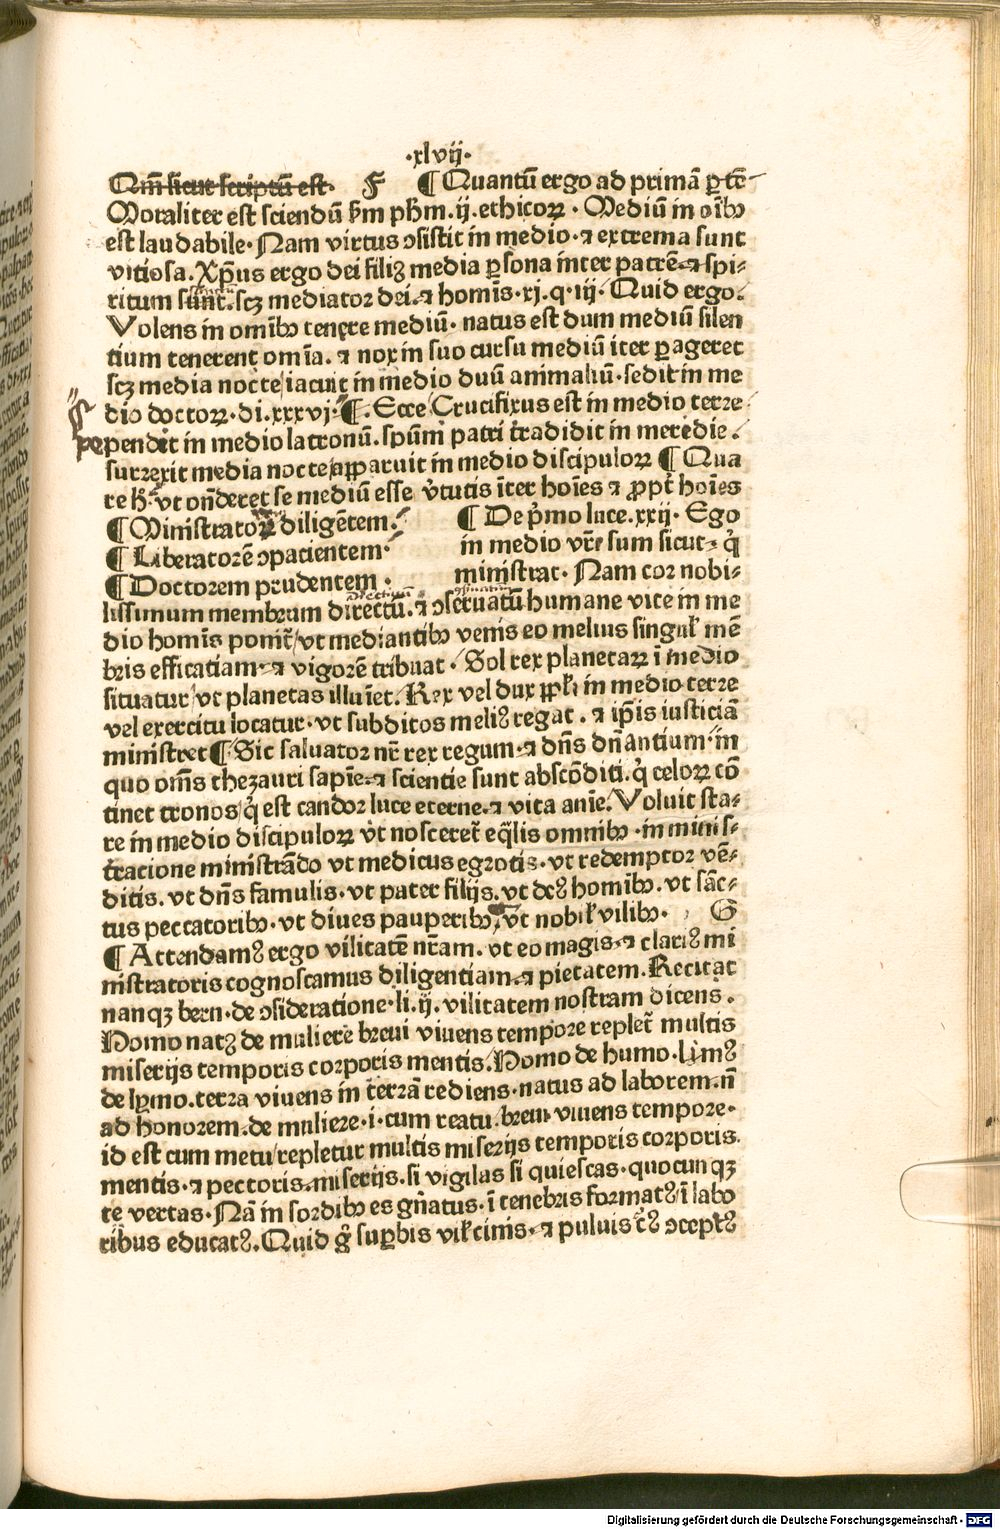 ·xlvij·
Qm̄ sicut scriptū est· F ¶ Quantū ergo ad primā ꝑtē
Moraliter est sciendū ẜm ph̄m.ij.ethicoꝝ · Mediū in oībꝰ
est laudabile· Nam virtus ↄsistit in medio·⁊ extrema sunt
vitiosa. Xp̄us ergo dei filiꝰ media ꝑsona inter patrē·⁊ spi⸗
ritum sctz mediator dei·⁊ homīs·xj.q·iij· Quid ergo.
Volens in omībꝰ tenere mediū· natus est dum mediū silen
tium tenerent omīa. ⁊ nox in suo cursu mediū iter ꝑageret
scꝫ media nocte/iacuit in medio duū animaliū·sedit in me
dio doctoꝝ·di.xxxvj·¶. Ecce Crucifixus est in medio terre
pependit in medio latronū.spūm patri tradidit in meredie.
surrexit media nocte/apparuit in medio discipuloꝝ ¶ Qua
re h̄·vt on̄deret se mediū esse v̓tutis īter hoīes ⁊ ꝓpt̄ hoīes
¶ Ministratorem diligētem. ¶ De p̓mo luce.xxij· Ego
¶ Liberatorē ↄpacientem· in medio vr̄e sum sicut· q̇
¶ Doctorem prudentem · ministrat· Nam cor nobi⸗
lissimum membrum directū.⁊ ↄseruatū humane vite in me
dio homīs ponit̄/vt mediantibꝰ venis eo melius singul̓ mē
bris efficatiam·⁊ vigorē tribuat · Sol rex planetaꝝ ī medio
situatur/vt planetas illuīet. Rex vel dux ppl̓i in medio terre
vel exercitu locatur·vt subditos meliꝰ regat.⁊ ip̄is iusticiā
ministret ¶ Sic saluator nr̄ rex regum·⁊ dn̄s dn̄antium·in
quo om̄s thezauri sapīe·⁊ scientie sunt abscōditi.q̇ celoꝝ cō
tinet tronos/q̇ est candor luce eterne.⁊ vita anīe. Voluit sta⸗
re in medio discipuloꝝ vt nosceret̄ eq̄lis omnibꝰ ·in minis⸗
tracione ministrādo vt medicus egrotis·vt redemptor vē⸗
ditis.vt dn̄s famulis·vt pater filijs.vt deꝰ homībꝰ.vt sāc⸗
tus peccatoribꝰ·vt diues pauperibꝰ,vt nobil̓ vilibꝰ· G
¶ Attendamꝰ ergo vilitatē nr̄am.vt eo magis·⁊ clariꝰ mi
nistratoris cognoscamus diligentiam.⁊ pietatem. Recitat
nanqꝫ bern·de ↄsideratione·li.ij.vilitatem nostram dicens.
Homo natꝰ de muliere breui viuens tempore replet̄ multis
miserijs temporis corporis mentis. Homo de humo.lymꝰ
de lymo.terra viuens in terrā rediens·natus ad laborem.n̄
ad honorem.de muliere·i·cum reatu.breui viuens tempore·
id est cum metu/repletur multis miserijs temporis corporis.
mentis·⁊ pectoris.miserijs.si vigilas si quiescas·quocunqꝫ
te vertas·Nā in sordibꝰ es gn̄atus·ī tenebris formatꝰ ī labo
ribus educatꝰ.Quid g̊ suꝑbis vil̓ cinis·⁊ puluis cꝰ ↄceptꝰ
Digitalisierung gefördert durch die Deutsche Forschungsgemeinschaft - DFG